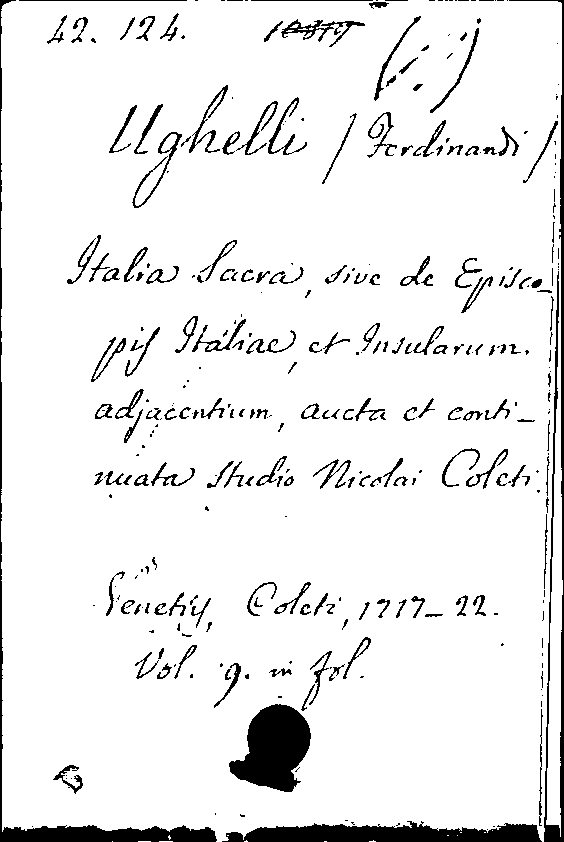 42. 124. 10819 (∴)
Ughelli / Ferdinandi /
Italia Sacra, sive de Episco-
pis Italiae, et Insularum
adjacentium, aucta et conti-
nuata studio Nicolai Coleti.
Venetijs, Coleti, 1717-22.
Vol. 9. in fol.